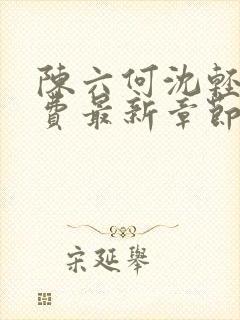 陳六何沈輕
費最新章節
宋延舉